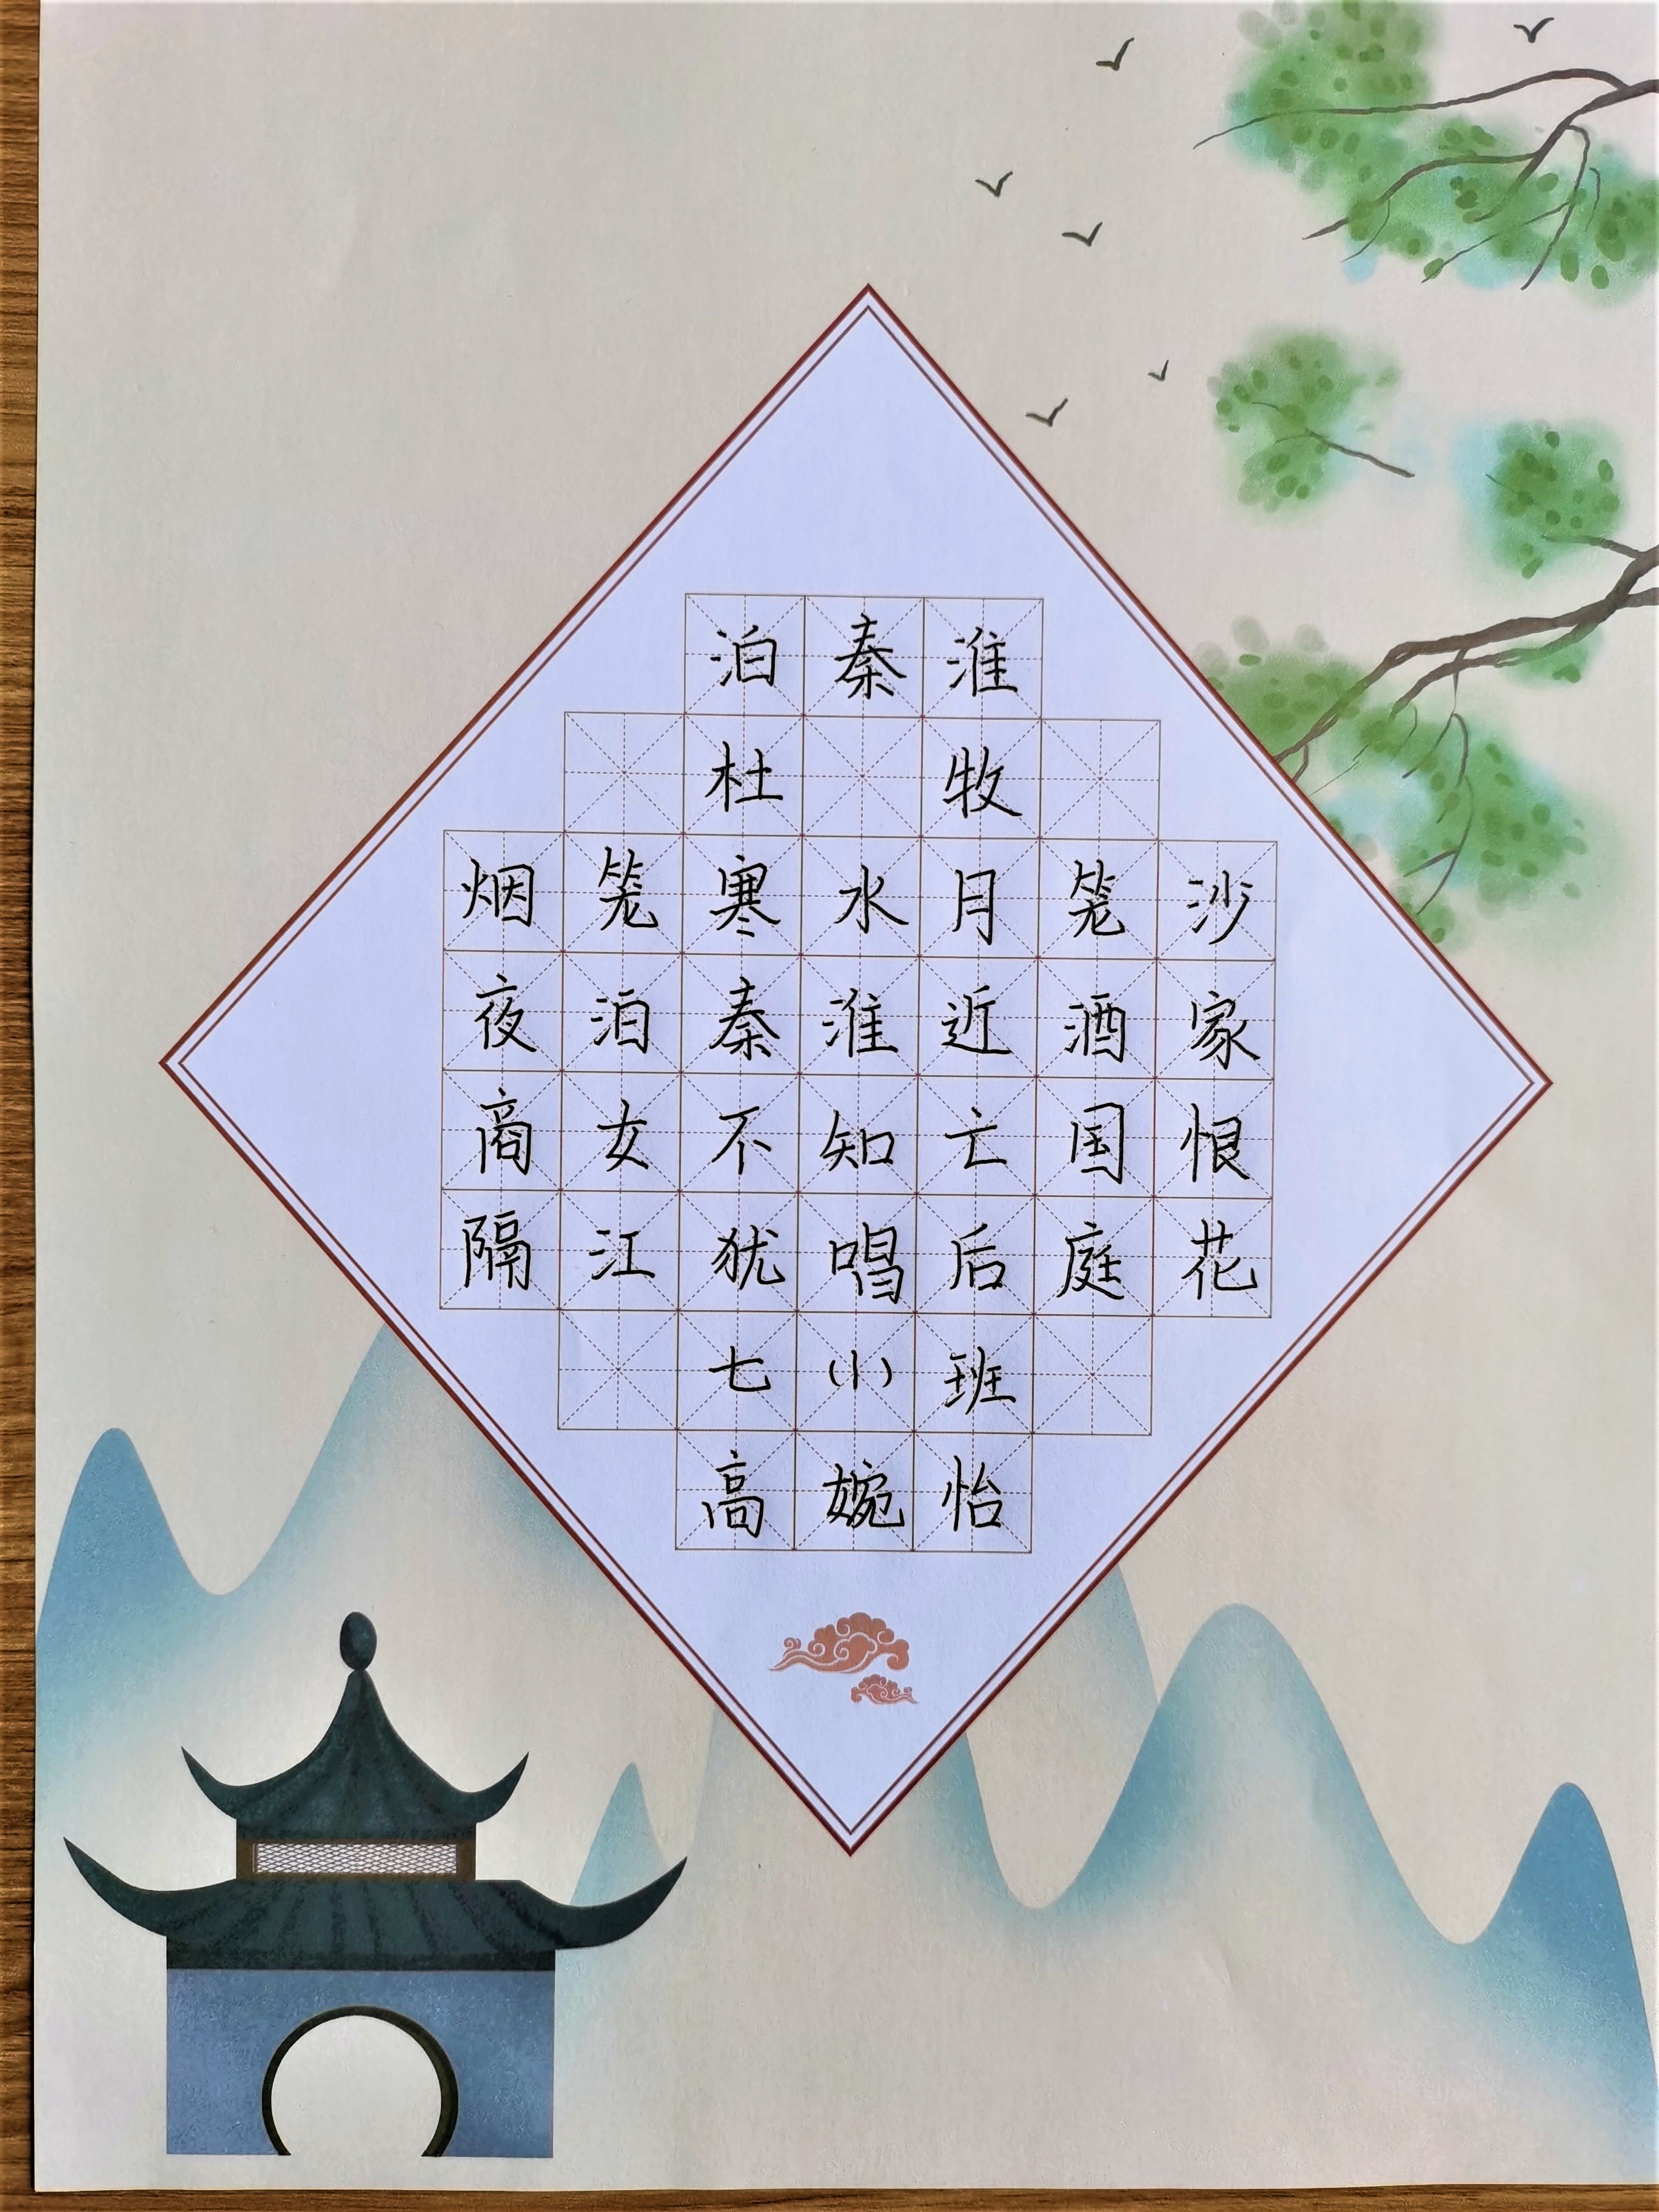 泊秦淮
杜牧
烟笼寒水月笼沙
夜泊秦淮近酒家
商女不知亡国恨
隔江犹唱后庭花
七(小)班
高婉怡